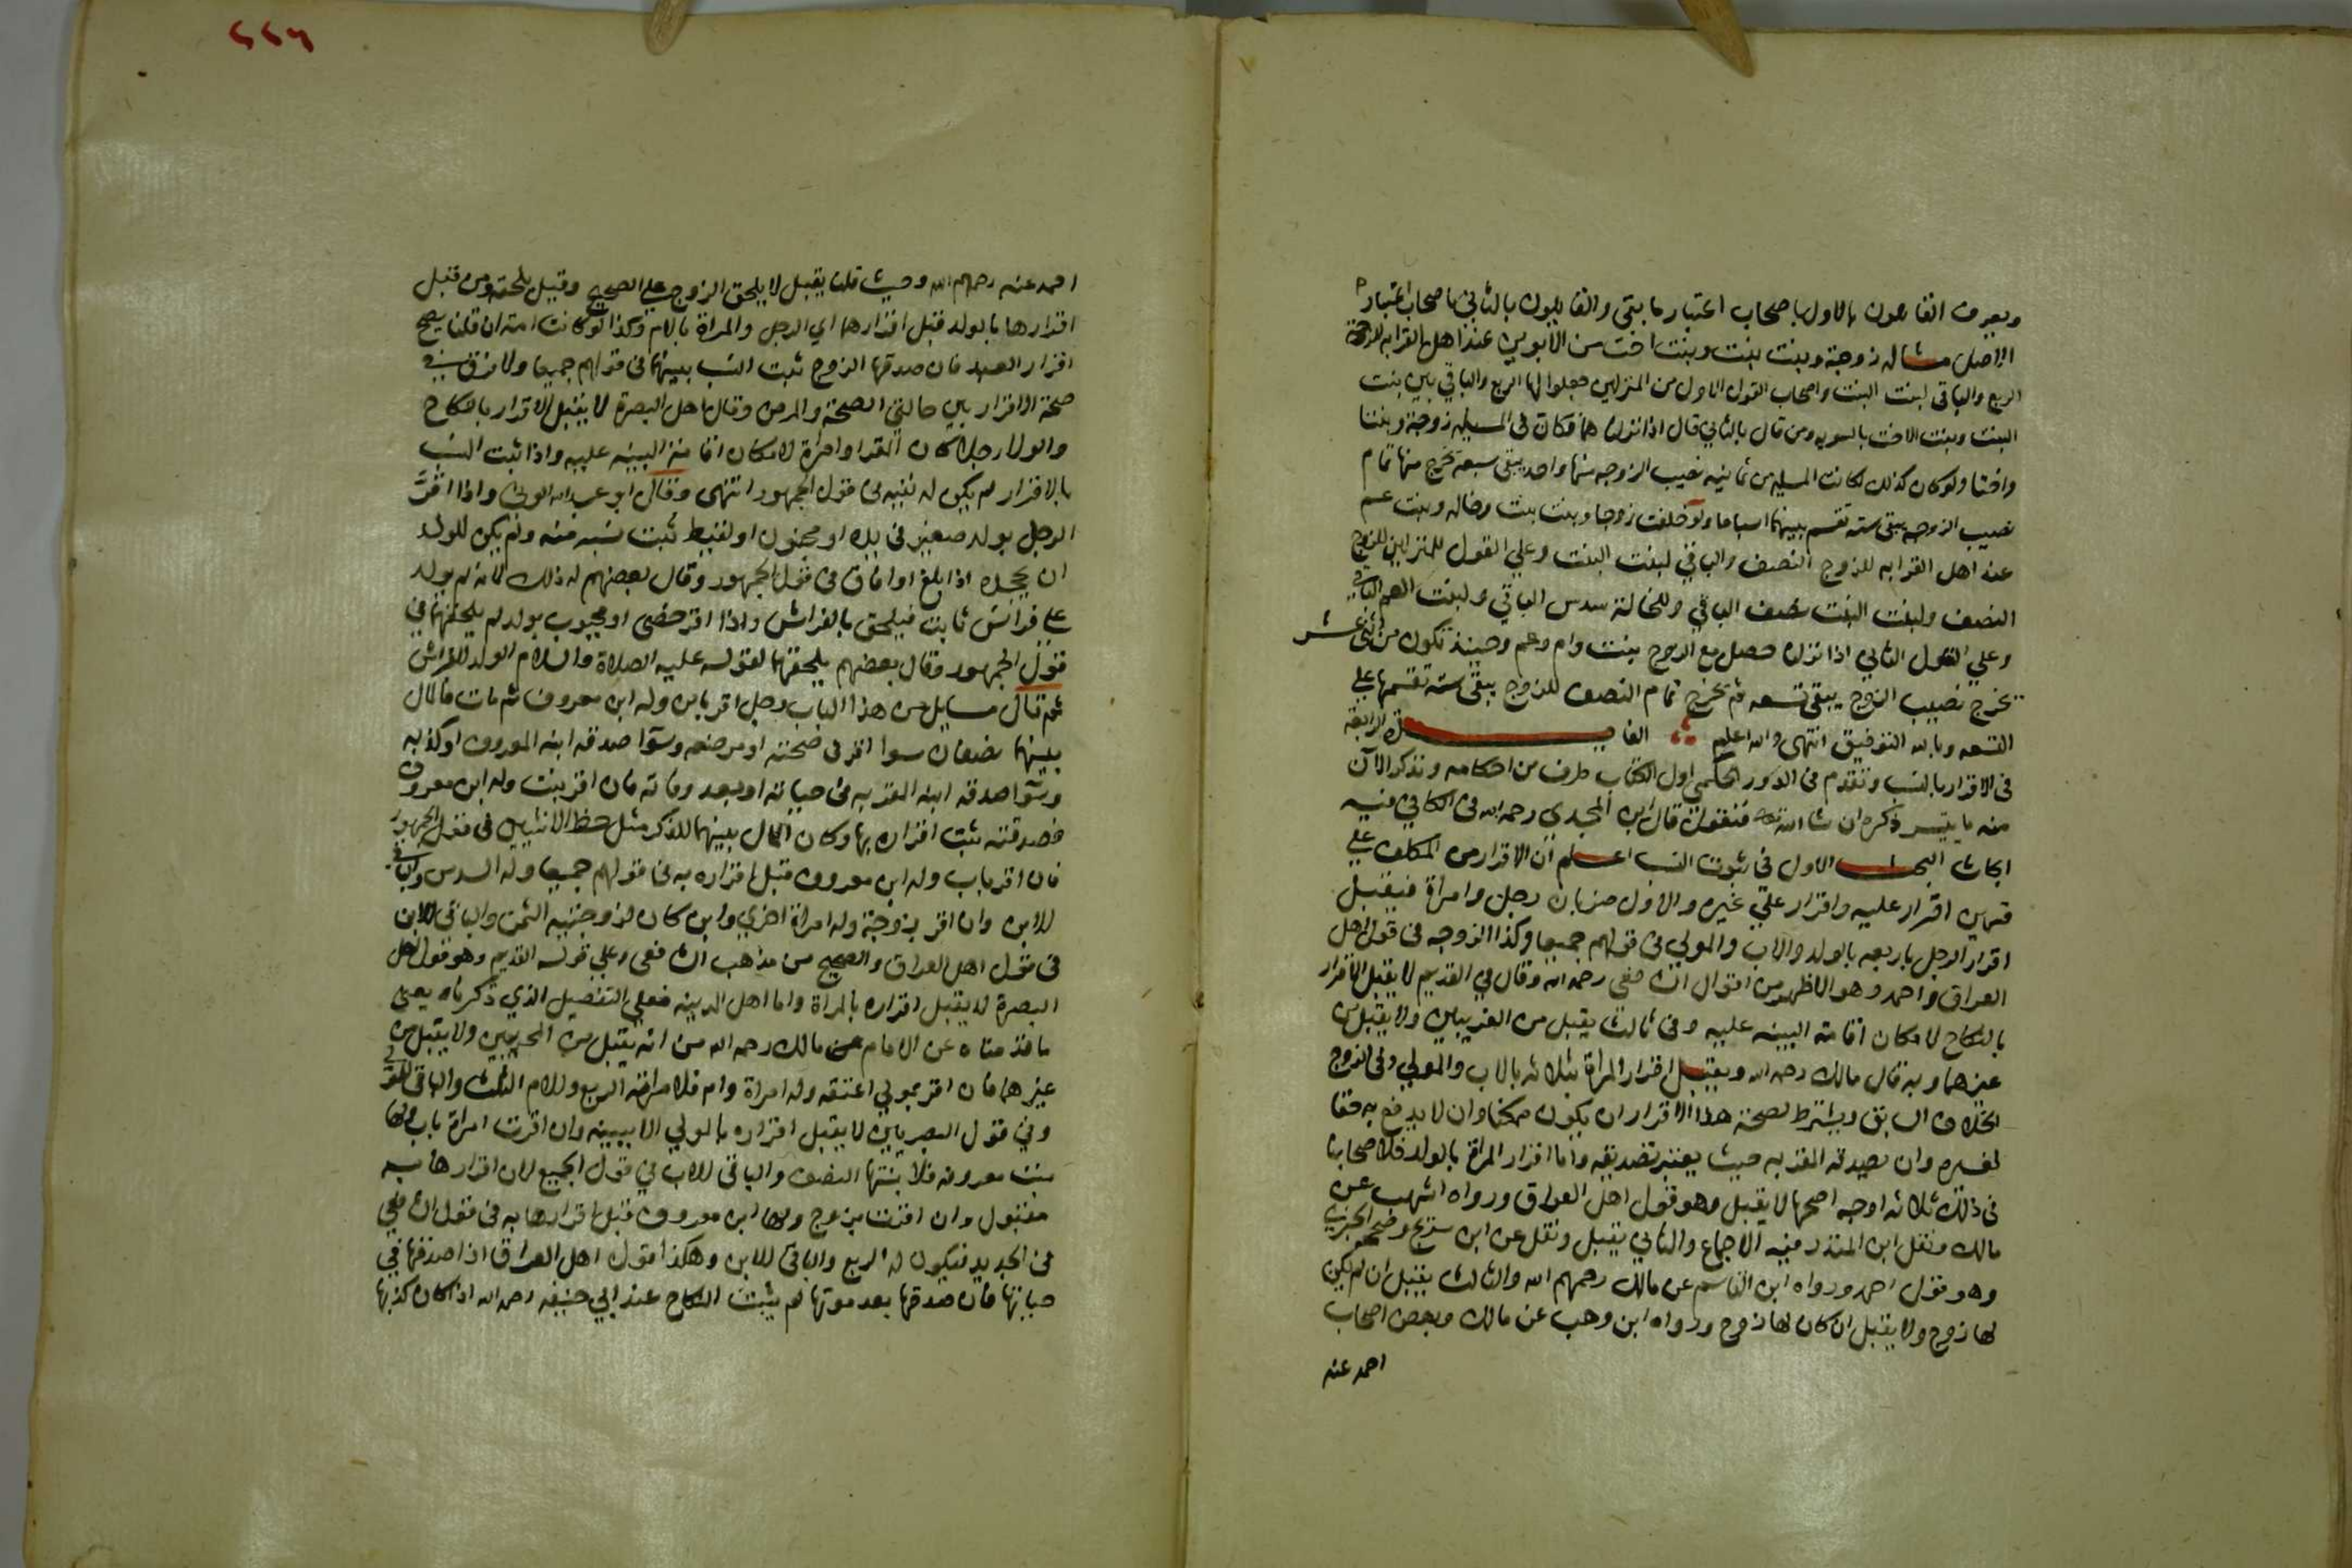 ويعرف القايلون بالاول باصحاب اعتبار ما بقي والقايلون بالثاني باصحاب اعتبار
الاصل مثاله زوجة وبنت بنت وبنت اخت من الابوين عند اهل القرابه للزوجة
الربع والباقي لبنت البنت واصحاب القول الاول من المنزلين جعلوا لها الربع والباقي بين بنت
البنت وبنت الاخت بالسويه ومن قال بالثاني قال اذا نزلناهما فكان في المسيله زوجة وبنتا
واختا ولو كان كذلك لكانت المسيله من ثمانيه نصيب الزوجه منها واحد يبقى سبعه نخرج منها تمام
نصيب الزوجه يبقى سته تقسم بينهما اسباعا ولو خلفت زوجا وبنت بنت وخاله وبنت عم
عند اهل القرابه للزوج النصف والباقي لبنت البنت وعلي القول للمنزلين للزوج
النصف ولبنت البنت نصف الباقي وللخالة سدس الباقي ولبنت العم الباقي
وعلي القول الثاني اذا نزلن حصل مع الزوج بنت وام وعم وحينئذ تكون من اثني عشر
نخرج نصيب الزوج يبقى تسعه ثم نخرج تمام النصف للزوج يبقى سته تقسمها علي
التسعه وبالله التوفيق انتهى والله اعلم الفايدة الرابعة
في الاقرار بالنسب وتقدم في الدور الحكمي اول الكتاب طرف من احكامه ونذكر الآن
منه ما يتيسر ذكره ان شا الله تعالى فنقول قال ابن المجدي رحمه الله في الكافي فيه
ابحاث البحث الاول في ثبوت النسب اعلم ان الاقرار من المكلف علي
قسمين اقرار عليه واقرار علي غيره والاول ضربان رجل وامراة فيقبل
اقرار الرجل باربعه بالولد والاب والمولي في قولهم جميعا وكذا الزوجه في قول اهل
العراق واحمد وهو الاظهر من اقوال الشافعي رحمه الله وقال في القديم لا يقبل الاقرار
بالنكاح لامكان اقامة البينه عليه وفي ثالث يقبل من الغريبين ولا يقبل من
غيرهما وبه قال مالك رحمه الله ويقبل اقرار المراة بثلاثه بالاب والمولي وفي الزوج
الخلاف السابق ويشترط لصحة هذا الاقرار ان يكون ممكنا وان لا يدفع به حقا
لغيره وان يصدقه المقر به حيث يعتبر تصديقه واما اقرار المراة بالولد فلاصحابنا
في ذلك ثلاثه اوجه اصحها لا يقبل وهو قول اهل العراق ورواه اشهب عن
مالك ونقل ابن المنذر فيه الاجماع والثاني يقبل ونقل عن ابن سريج وصححه الخبري
وهو قول احمد ورواه ابن القاسم عن مالك رحمهم الله والثالث يقبل ان لم يكن
لها زوج ولا يقبل ان كان لها زوج ورواه ابن وهب عن مالك وبعض اصحاب
احمد عنه
٢٢٦
احمد عنه رحمهم الله وحيث قلنا يقبل لا يلحق الزوج علي الصحيح وقيل يلحقه ومن قبل
اقرارها بالولد قبل اقرارهما اي الرجل والمراة بالام وكذا لو كانت امة ان قلنا يصح
اقرار العبد فان صدقها الزوج ثبت النسب بينهما في قولهم جميعا ولا فرق في
صحة الاقرار بين حالتي الصحة والمرض وقال اهل البصرة لا يقبل الاقرار بالنكاح
والولا رجلا كان المقر او امراة لامكان اقامة البينه عليه واذا ثبت النسب
بالاقرار لم يكن له نفيه في قول الجمهور انتهى وقال ابو عبد الله الوني واذا اقرَّ
الرجل بولد صغير في يده او مجنون او لقيط ثبت نسبه منه ولم يكن للولد
ان يجحده اذا بلغ او افاق في قول الجمهور وقال بعضهم له ذلك لانه لم يولد
علي فراش ثابت فيلحق بالفراش واذا اقر خصي او مجبوب بولد لم يلحقهما في
قول الجمهور وقال بعضهم يلحقهما لقوله عليه الصلاة والسلام الولد للفراش
ثم قال مسايل من هذا الباب رجل اقر بابن وله ابن معروف ثم مات فالمال
بينهما نصفان سوا اقر في صحته او مرضه وسوا صدقه ابنه المعروف او كذبه
وسوا صدقه ابنه المقر به في حياته او بعد وفاته فان اقر ببنت وله ابن معروف
فصدقته ثبت اقراره بها وكان المال بينهما للذكر مثل حظ الانثيين في قول الجمهور
فان اقر باب وله ابن معروف قبل اقراره به في قولهم جميعا وله السدس والباقي
للابن وان اقر بزوجة وله امراة اخري وابن كان لزوجتيه الثمن والباقي للابن
في قول اهل العراق والصحيح من مذهب الشافعي وعلي قوله القديم وهو قول اهل
البصرة لا يقبل اقراره بالمراة واما اهل المدينه فعلي التفصيل الذي ذكرناه يعني
ما قدمناه عن الامام مالك رحمه الله من انه يقبل من الغريبين ولا يقبل من
غيرهما فان اقر بمولي اعتقه وله امراة وام فلامراته الربع وللام الثلث والباقي للمولي
وفي قول البصريين لا يقبل اقراره بالمولي الا ببينه وان اقرت امراة باب ولها
بنت معروفه فلابنتها النصف والباقي للاب في قول الجميع لان اقرارها به
مقبول وان اقرت بزوج ولها ابن معروف قبل اقرارها به في قول الشافعي
في الجديد فيكون له الربع والباقي للابن وهكذا قول اهل العراق اذا صدقها في
حياتها فان صدقها بعد موتها لم يثبت النكاح عند ابي حنيفه رحمه الله اذا كان كذبها